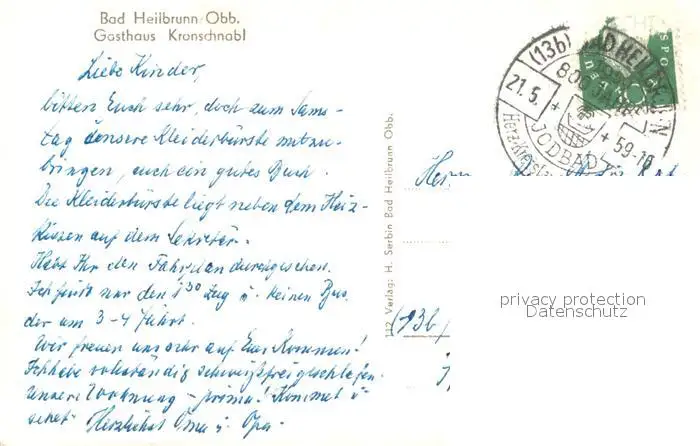 Bad Heilbrunn Obb.
Gasthaus Kronschnabl
Liebe Kinder,
bitten Euch sehr, doch zum Sams-
tag unsere Kleiderbürste mitzu-
bringen, auch ein gutes Buch.
Die Kleiderbürste liegt neben dem Heiz-
kissen auf dem Sekretär.
Habt Ihr den Fahrplan durchgesehen.
Ich nur den 1³⁰ Zug u. keinen Bus
der um 3-4 fährt.
Wir freuen uns sehr auf Euer Kommen!
Ich habe vollständig schweißfrei geschlafen.
Unsere Wohnung - prima! Kommet u.
sehet. Herzlichst Oma u. Opa.
112 Verlag: H. Serbin Bad Heilbrunn Obb.
(13b) BAD HEILBRUNN
21.5.
59-16
JODBAD
Herrn
(13b)
privacy protection
Datenschutz